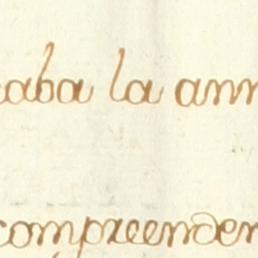 caba la ann
compreender